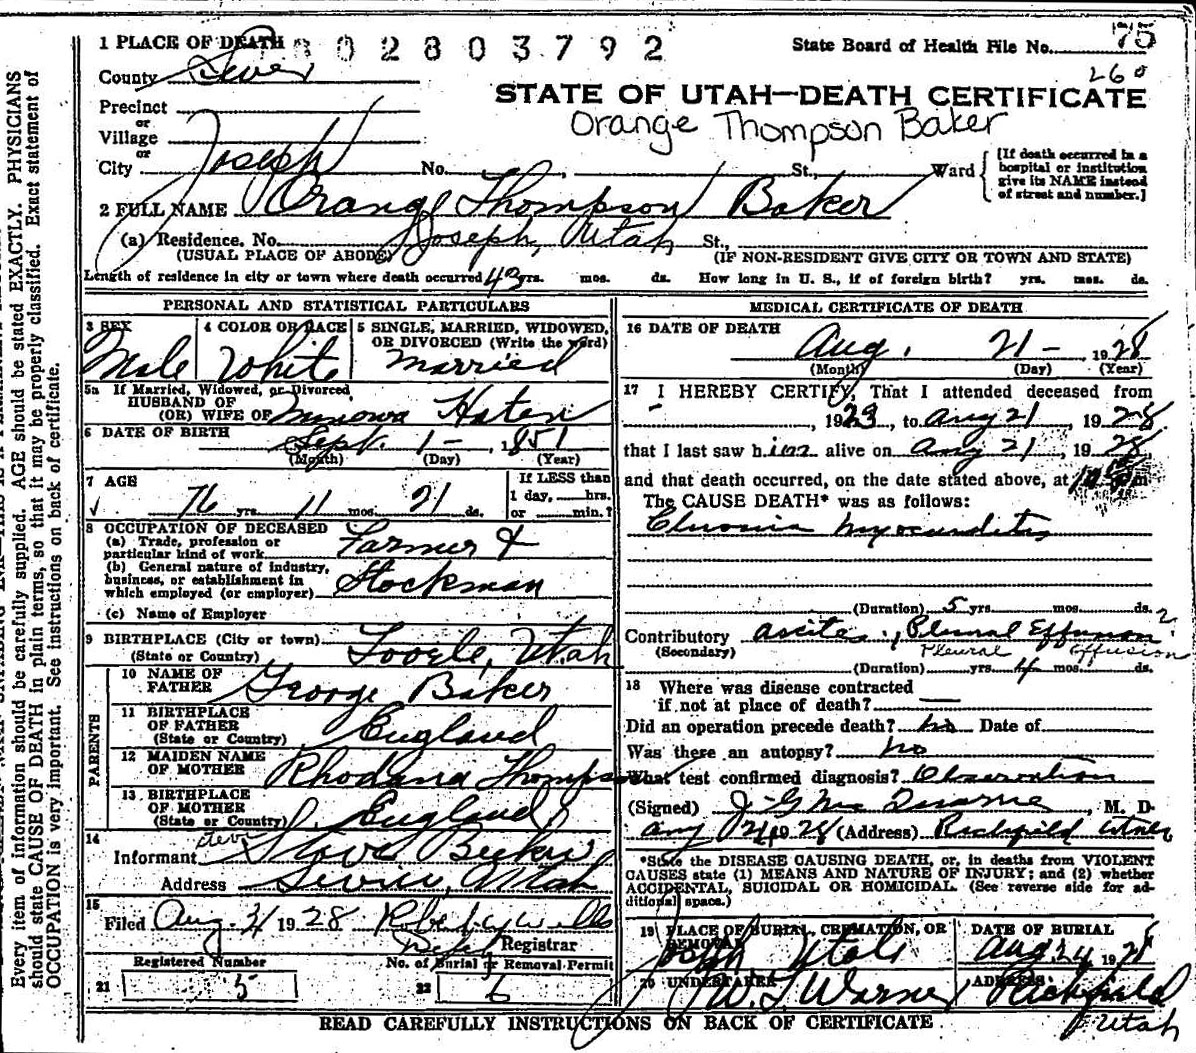 1 PLACE OF DEATH 02803792
State Board of Health File No. 75
260
County Sevier
STATE OF UTAH—DEATH CERTIFICATE
Orange Thompson Baker
Precinct
or
Village
or
City Joseph No. St., Ward
[If death occurred in a
hospital or institution
give its NAME instead
of street and number.]
2 FULL NAME Orange Thompson Baker
(a) Residence. No. Joseph, Utah St.,
(USUAL PLACE OF ABODE) (IF NON-RESIDENT GIVE CITY OR TOWN AND STATE)
Length of residence in city or town where death occurred 43 yrs. mos. ds. How long in U. S., if of foreign birth? yrs. mos. ds.
PERSONAL AND STATISTICAL PARTICULARS
3 SEX 4 COLOR OR RACE 5 SINGLE, MARRIED, WIDOWED,
OR DIVORCED (Write the word)
Male White Married
5a If Married, Widowed, or Divorced
HUSBAND OF
(OR) WIFE OF
6 DATE OF BIRTH Sept. 1- , 1851
(Month) (Day) (Year)
7 AGE If LESS than
1 day, hrs.
76 yrs. 11 mos. 21 ds. or min.?
8 OCCUPATION OF DECEASED
(a) Trade, profession or
particular kind of work Farmer &
(b) General nature of industry,
business, or establishment in
which employed (or employer) Stockman
(c) Name of Employer
9 BIRTHPLACE (City or town)
(State or Country) Tooele, Utah
PARENTS
10 NAME OF
FATHER George Baker
11 BIRTHPLACE
OF FATHER
(State or Country) England
12 MAIDEN NAME
OF MOTHER Thompson
13 BIRTHPLACE
OF MOTHER
(State or Country) England
14
Informant
Address Sevier, Utah
15
Filed Aug. 1928
Registrar
Registered Number No. of Burial or Removal Permit
21 5 22 6
MEDICAL CERTIFICATE OF DEATH
16 DATE OF DEATH
Aug. 21- , 1928
(Month) (Day) (Year)
17 I HEREBY CERTIFY, That I attended deceased from
, 1923, to Aug 21, 1928
that I last saw him alive on Aug 21, 1928,
and that death occurred, on the date stated above, at m
The CAUSE DEATH* was as follows:
Chronic Myocarditis
(Duration) 5 yrs. mos. ds.
Contributory Ascites, Pleural Effusion
(Secondary) Pleural Effusion
(Duration) yrs. 4 mos. ds.
18 Where was disease contracted
if not at place of death?
Did an operation precede death? no Date of
Was there an autopsy? no
What test confirmed diagnosis? Observation
(Signed) , M. D.
Aug 21, 1928 (Address) Richfield Utah
*State the DISEASE CAUSING DEATH, or, in deaths from VIOLENT
CAUSES state (1) MEANS AND NATURE OF INJURY; and (2) whether
ACCIDENTAL, SUICIDAL OR HOMICIDAL. (See reverse side for ad-
ditional space.)
19 PLACE OF BURIAL, CREMATION, OR
REMOVAL DATE OF BURIAL
Joseph Utah Aug. 24 1928
20 UNDERTAKER ADDRESS
Warner Richfield
Utah
READ CAREFULLY INSTRUCTIONS ON BACK OF CERTIFICATE
Every item of information should be carefully supplied. AGE should be stated EXACTLY. PHYSICIANS
should state CAUSE OF DEATH in plain terms, so that it may be properly classified. Exact statement of
OCCUPATION is very important. See instructions on back of certificate.